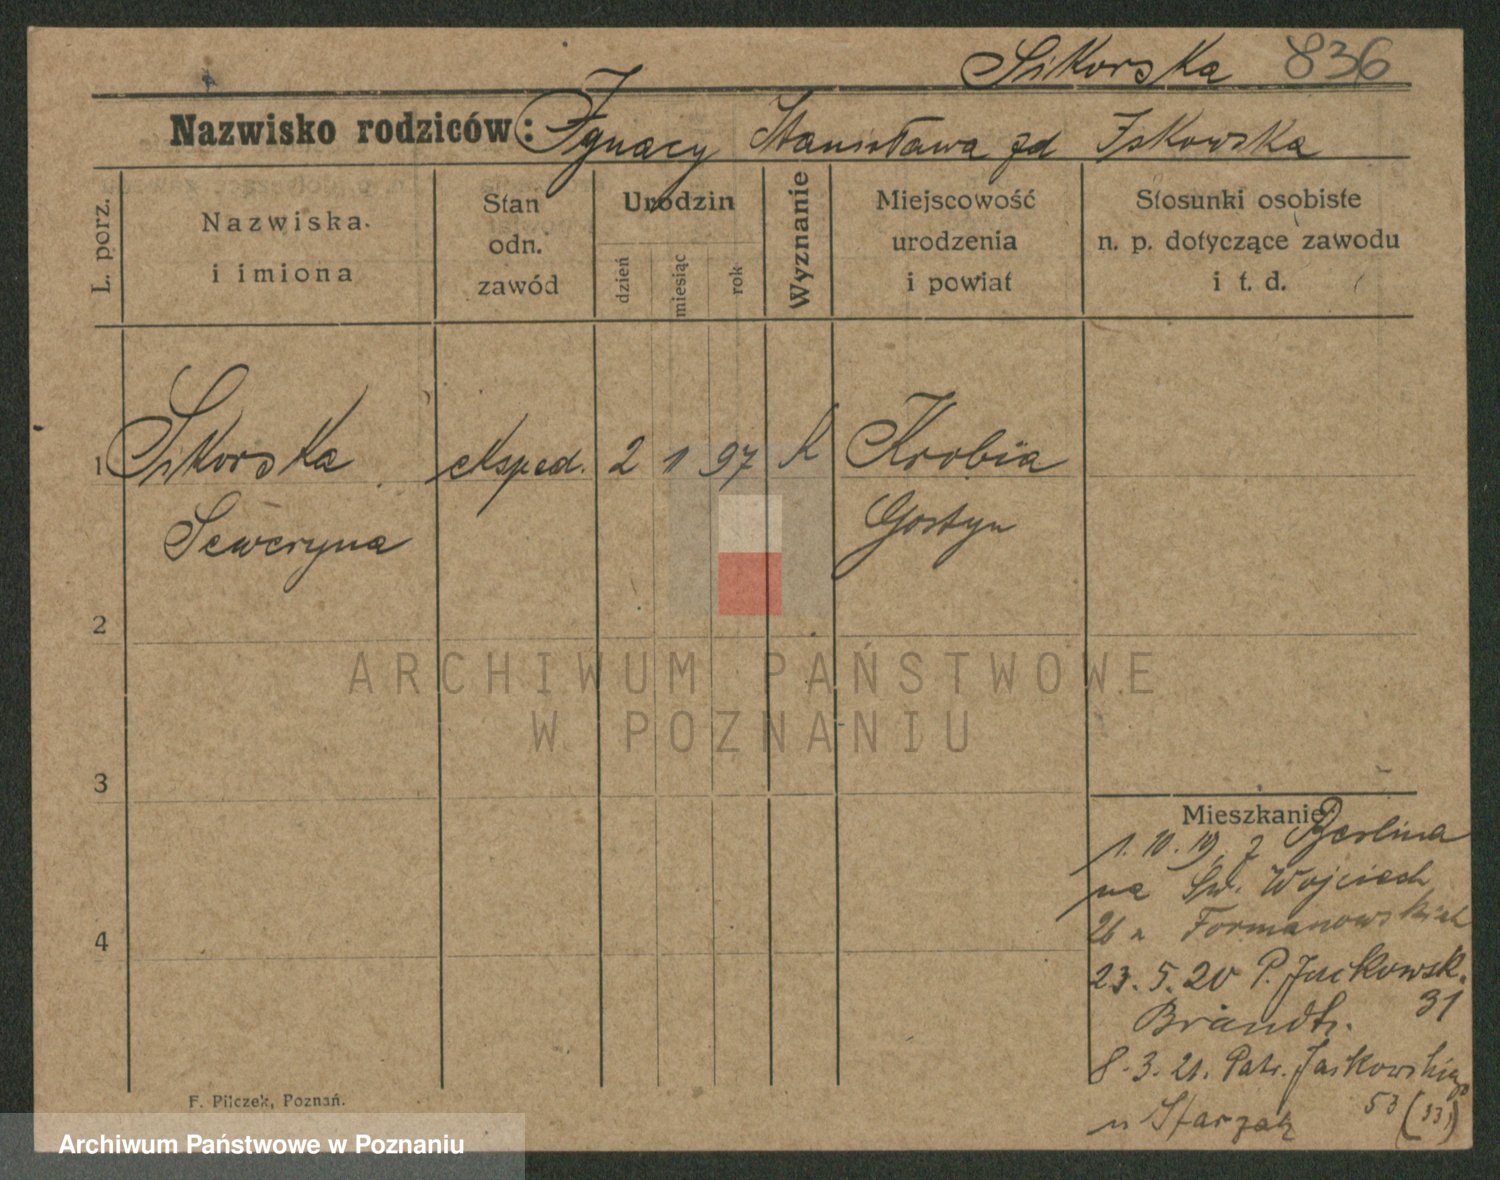 Sikorska 836
Nazwisko rodziców: Ignacy Stanisława zd Iskowska
L. porz.
Nazwiska i imiona
Stan odn. zawód
Urodzin
dzień miesiąc rok
Wyznanie
Miejscowość urodzenia i powiat
Stosunki osobiste n. p. dotyczące zawodu i t. d.
1 Sikorska eksped. 2 1 97 K Krobia
Seweryna Gostyn
2
ARCHIWUM PAŃSTWOWE
W POZNANIU
3
Mieszkanie:
1. 10. 19. z Berlina
na Św. Wojciech
26 u Formanowskich
23. 5. 20 P. Jackowsk.
31
Brandt.
4
8. 3. 21. Patr. Jackowskiego
53 (33)
u Starzak
F. Pilczek, Poznań.
Archiwum Państwowe w Poznaniu